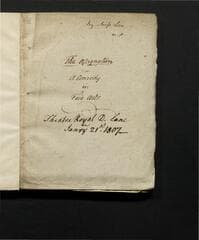 By Miss Lee
The Assignation
A Comedy
in
Five Acts
Theatre Royal D. Lane
Janry 21st 1807.